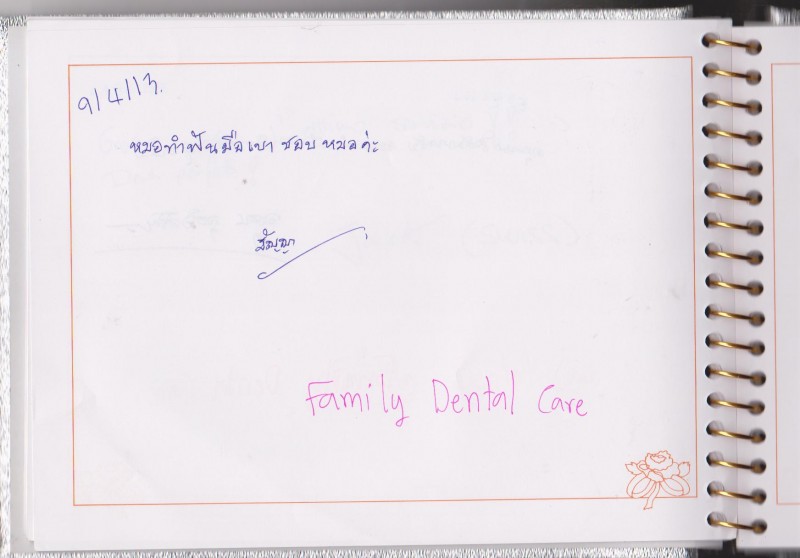 9/4/13.
หมอทำฟันมือเบา ชอบหมอค่ะ
สัญญา
Family Dental Care